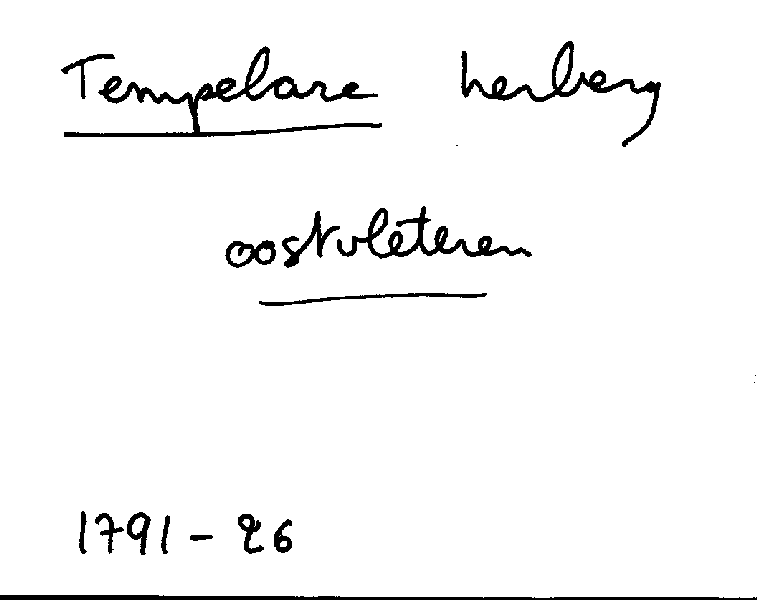 Tempelare herberg
oostvleteren
1791 - 26